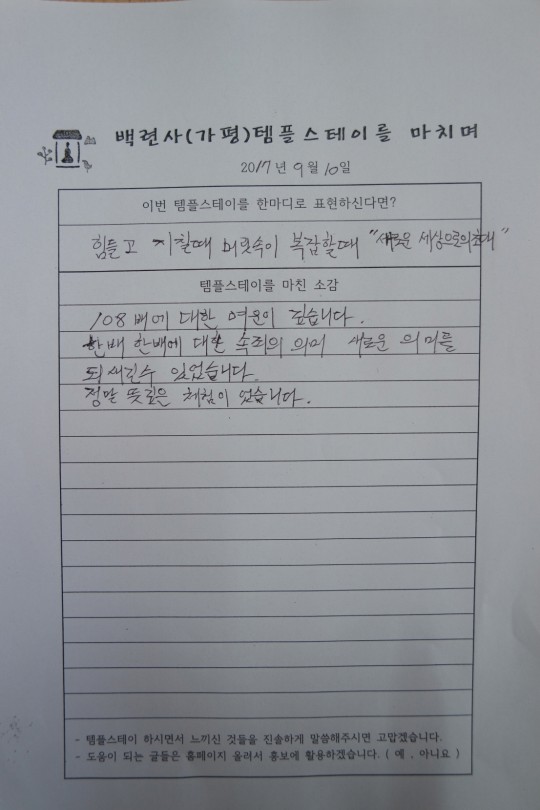 백련사(가평)템플스테이를 마치며
2017년 9월 10일
이번 템플스테이를 한마디로 표현하신다면?
힘들고 지칠때 머릿속이 복잡할때 "새로운 세상으로의초대"
템플스테이를 마친 소감
108배에 대한 여운이 깊습니다.
한배 한배에 대한 속죄의 의미 새로운 의미를
되새긴수 있었습니다.
정말 뜻깊은 체험이 었습니다.
- 템플스테이 하시면서 느끼신 것들을 진솔하게 말씀해주시면 고맙겠습니다.
- 도움이 되는 글들은 홈페이지 올려서 홍보에 활용하겠습니다. ( 예 , 아니요 )